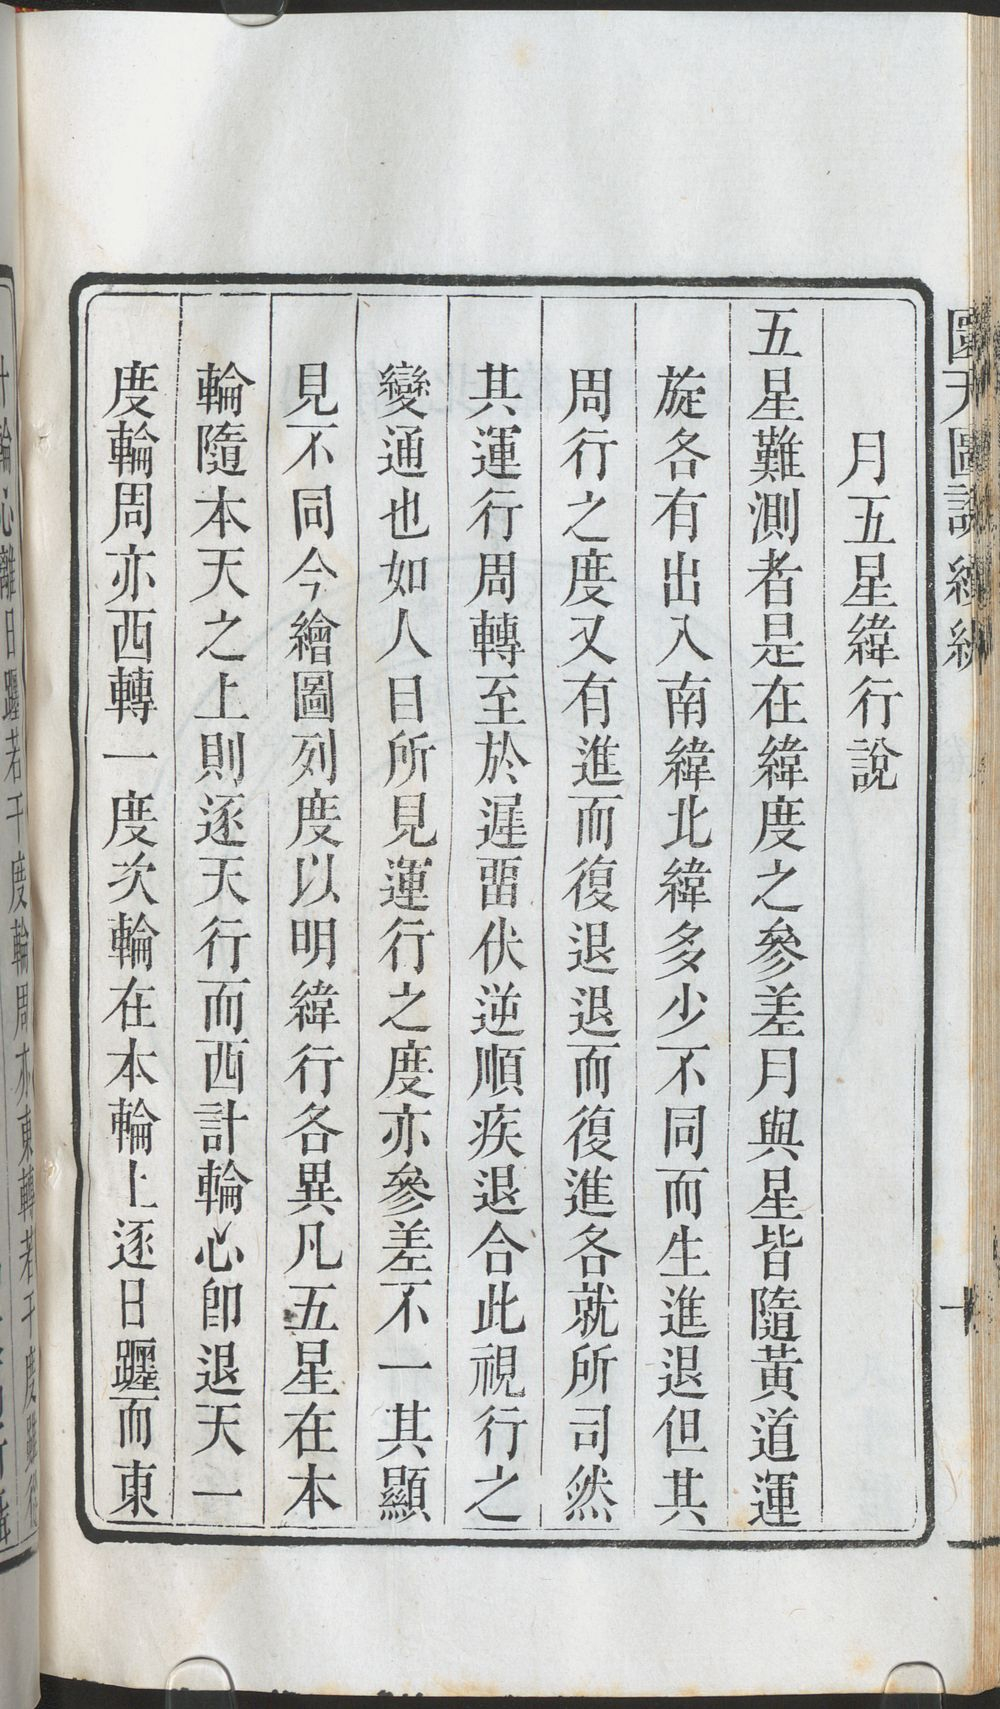 圜天圖說續編
一
月五星緯行說
五星難測者是在緯度之參差月與星皆隨黃道運
旋各有出入南緯北緯多少不同而生進退但其
周行之度又有進而復退退而復進各就所司然
其運行周轉至於遲畱伏逆順疾退合此視行之
變通也如人目所見運行之度亦參差不一其顯
見不同今繪圖列度以明緯行各異凡五星在本
輪隨本天之上則逐天行而西計輪心卽退天一
度輪周亦西轉一度次輪在本輪上逐日躔而東
計輪心離日躔若干度輪周亦東轉若干度